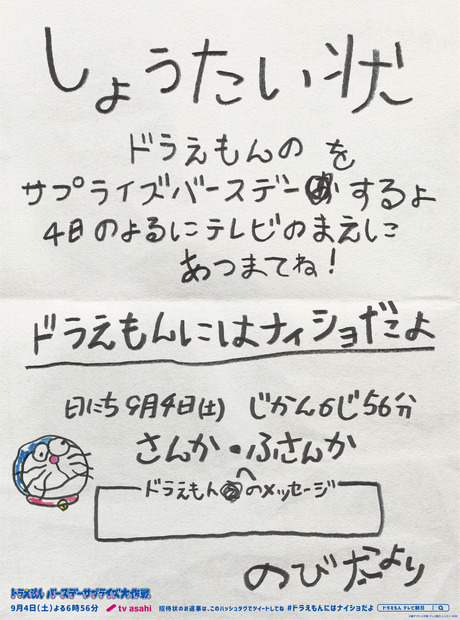 しょうたい状
ドラえもんの を
サプライズバースデー するよ
4日のよるにテレビのまえに
あつまてね!
ドラえもんにはナイショだよ
日にち 9月4日(土) じかん6じ56分
さんか・ふさんか
ドラえもん へのメッセージ
のびだより
ドラえもん バースデーサプライズ大作戦
9月4日(土)よる6時56分 tv asahi 招待状のお返事は、このハッシュタグでツイートしてね #ドラえもんにはナイショだよ ドラえもん テレビ朝日